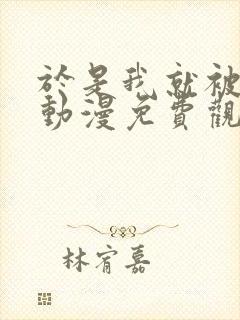 於是我就被
動漫免費觀
林宥嘉